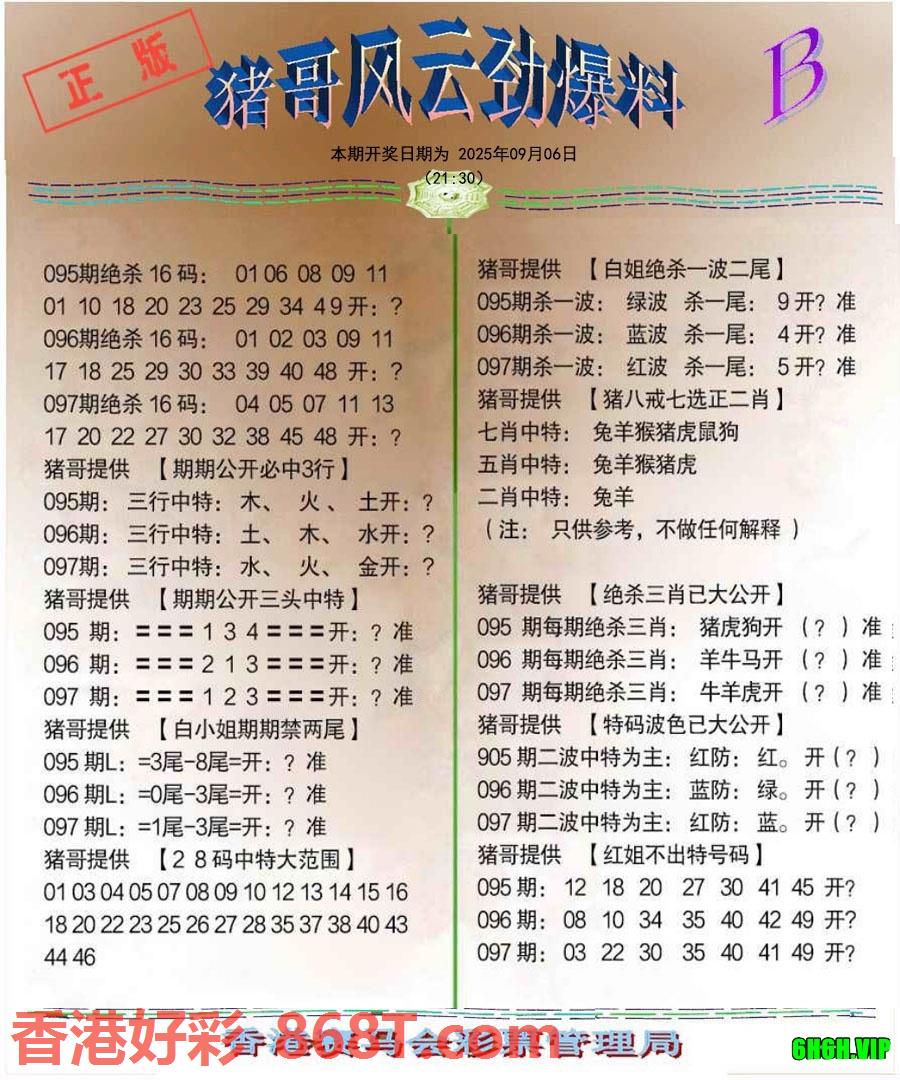 正版
猪哥风云劲爆料
B
本期开奖日期为 2025年09月06日
(21:30)
095期绝杀16码： 01 06 08 09 11
01 10 18 20 23 25 29 34 49开：?
096期绝杀16码： 01 02 03 09 11
17 18 25 29 30 33 39 40 48 开：?
097期绝杀16码： 04 05 07 11 13
17 20 22 27 30 32 38 45 48 开：?
猪哥提供 【期期公开必中3行】
095期： 三行中特：木、 火、 土开：?
096期： 三行中特：土、 木、 水开：?
097期： 三行中特：水、 火、 金开：?
猪哥提供 【期期公开三头中特】
095 期：＝＝＝1 3 4＝＝＝开：? 准
096 期：＝＝＝2 1 3＝＝＝开：? 准
097 期：＝＝＝1 2 3＝＝＝开：? 准
猪哥提供 【白小姐期期禁两尾】
095期L：=3尾-8尾=开：? 准
096期L：=0尾-3尾=开：? 准
097期L：=1尾-3尾=开：? 准
猪哥提供 【28码中特大范围】
01 03 04 05 07 08 09 10 12 13 14 15 16
18 20 22 23 25 26 27 28 35 37 38 40 43
44 46
猪哥提供 【白姐绝杀一波二尾】
095期杀一波： 绿波 杀一尾： 9开? 准
096期杀一波： 蓝波 杀一尾： 4开? 准
097期杀一波： 红波 杀一尾： 5开? 准
猪哥提供 【猪八戒七选正二肖】
七肖中特： 兔羊猴猪虎鼠狗
五肖中特： 兔羊猴猪虎
二肖中特： 兔羊
（注： 只供参考，不做任何解释 ）
猪哥提供 【绝杀三肖已大公开】
095 期每期绝杀三肖： 猪虎狗开 （? ）准
096 期每期绝杀三肖： 羊牛马开 （? ）准
097 期每期绝杀三肖： 牛羊虎开 （? ）准
猪哥提供 【特码波色已大公开】
905期二波中特为主： 红防： 红。 开(? )
096期二波中特为主： 蓝防： 绿。 开(? )
097期二波中特为主： 红防： 蓝。 开(? )
猪哥提供 【红姐不出特号码】
095期： 12 18 20 27 30 41 45 开?
096期： 08 10 34 35 40 42 49 开?
097期： 03 22 30 35 40 41 49 开?
香港好彩 868T.com
香港赛马会彩票管理局
6H6H.VIP